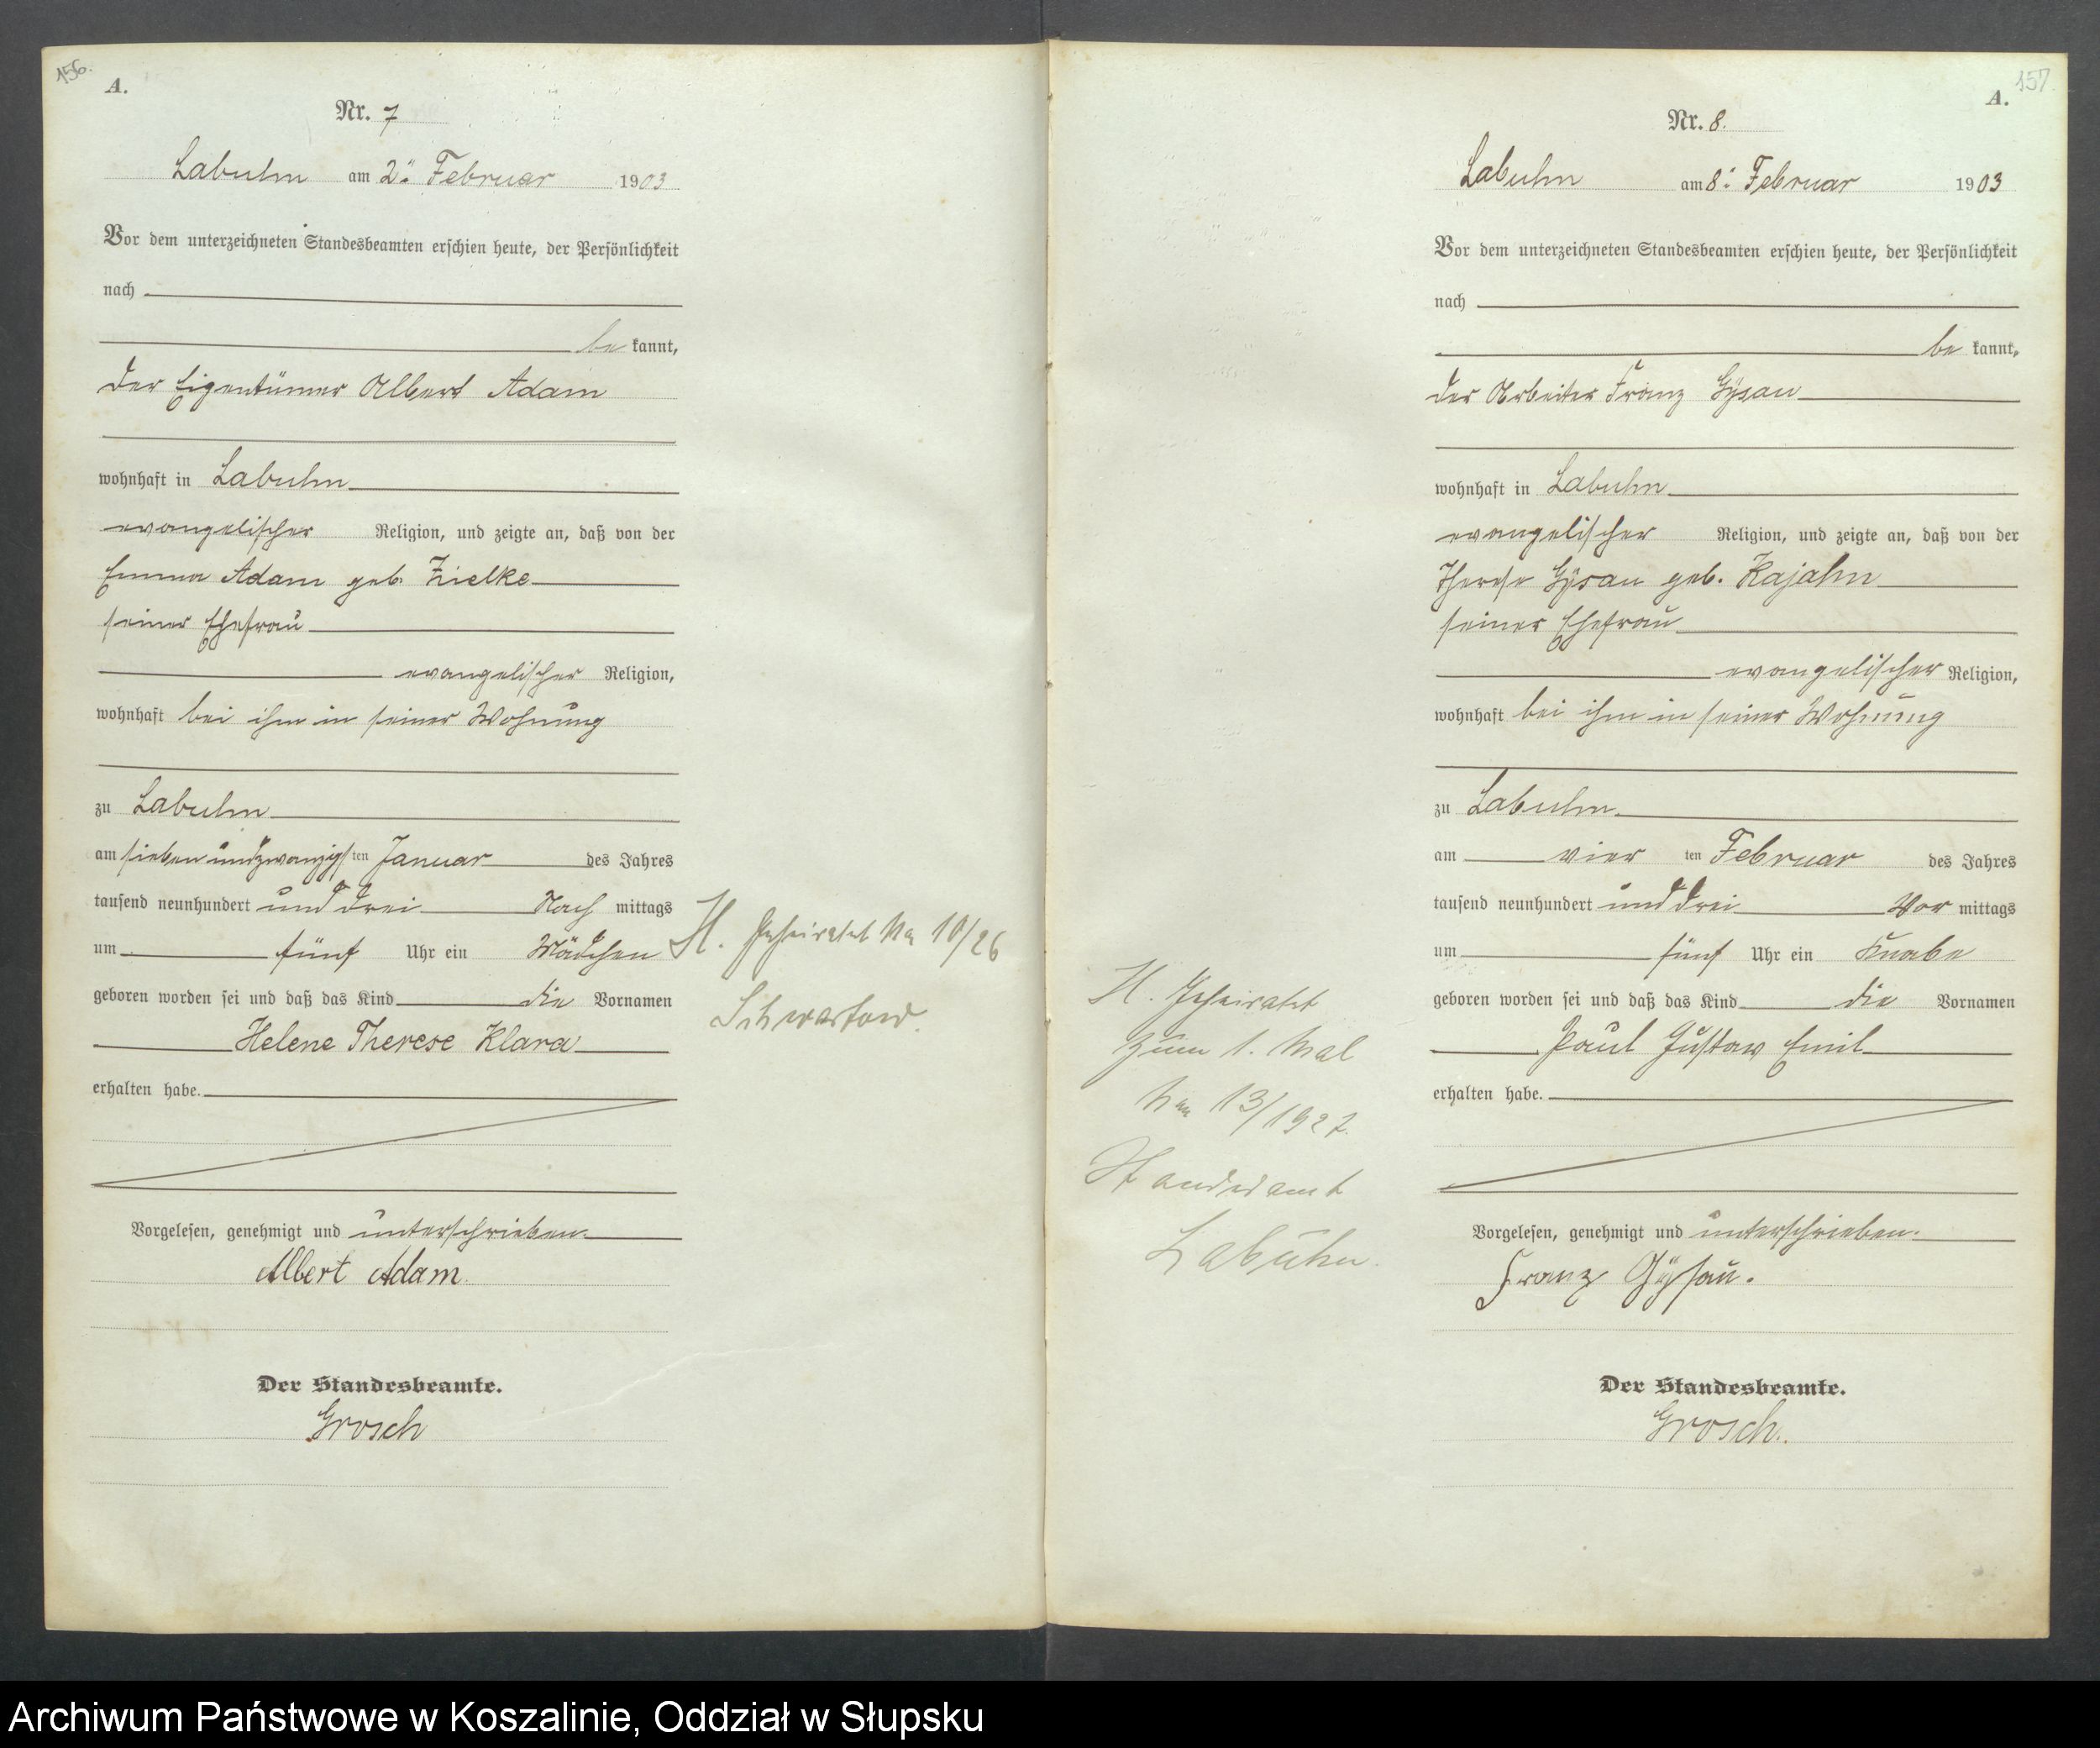 156.
A.
Nr. 7
Labuhn am 2ⁿ Februar 1903
Vor dem unterzeichneten Standesbeamten erschien heute, der Persönlichkeit
nach
be kannt,
der Eigentümer Albert Adam
wohnhaft in Labuhn
evangelischer Religion, und zeigte an, daß von der
Emma Adam geb. Zielke
seiner Ehefrau
evangelischer Religion,
wohnhaft bei ihm in seiner Wohnung
zu Labuhn
am sieben und zwanzigsten Januar des Jahres
tausend neunhundert und drei Nach mittags
um fünf Uhr ein Mädchen
geboren worden sei und daß das Kind die Vornamen
Helene Therese Klara
erhalten habe.
Vorgelesen, genehmigt und unterschrieben.
Albert Adam
Der Standesbeamte.
Grosch
H. Geheiratet Nr. 10/26
Schwartow.
157
A.
Nr. 8.
Labuhn am 8ⁿ Februar 1903
Vor dem unterzeichneten Standesbeamten erschien heute, der Persönlichkeit
nach
be kannt,
der Arbeiter Franz Gÿsau
wohnhaft in Labuhn
evangelischer Religion, und zeigte an, daß von der
Therese Gÿsau geb. Kajahn
seiner Ehefrau
evangelischer Religion,
wohnhaft bei ihm in seiner Wohnung
zu Labuhn
am vier ten Februar des Jahres
tausend neunhundert und drei Vor mittags
um fünf Uhr ein Knabe
geboren worden sei und daß das Kind die Vornamen
Paul Gustav Emil
erhalten habe.
Vorgelesen, genehmigt und unterschrieben.
Franz Gÿsau.
Der Standesbeamte.
Grosch.
H. Geheiratet
zum 1. Mal
13/1927.
Standesamt
Labuhn.
Archiwum Państwowe w Koszalinie, Oddział w Słupsku